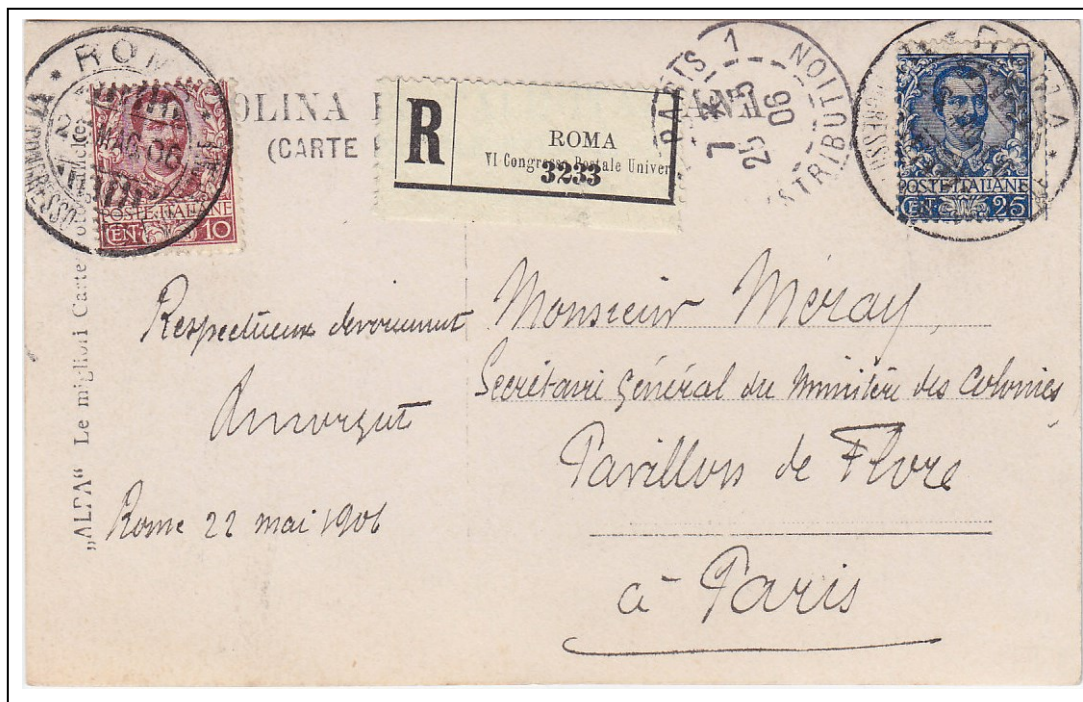 ROMA
MAG 06
POSTE ITALIANE
CENT 10
OLINA
(CARTE
R
ROMA
VI Congresso Postale Univer
3233
PARIS 1
7 25
25 06
DISTRIBUTION
ROMA
POSTE ITALIANE
CENT 25
„ALFA“ Le migliori Carte
Respectueux dévouement
Rome 22 mai 1906
Monsieur Méray,
Secrétaire Général du Ministère des Colonies
Pavillon de Flore
à Paris